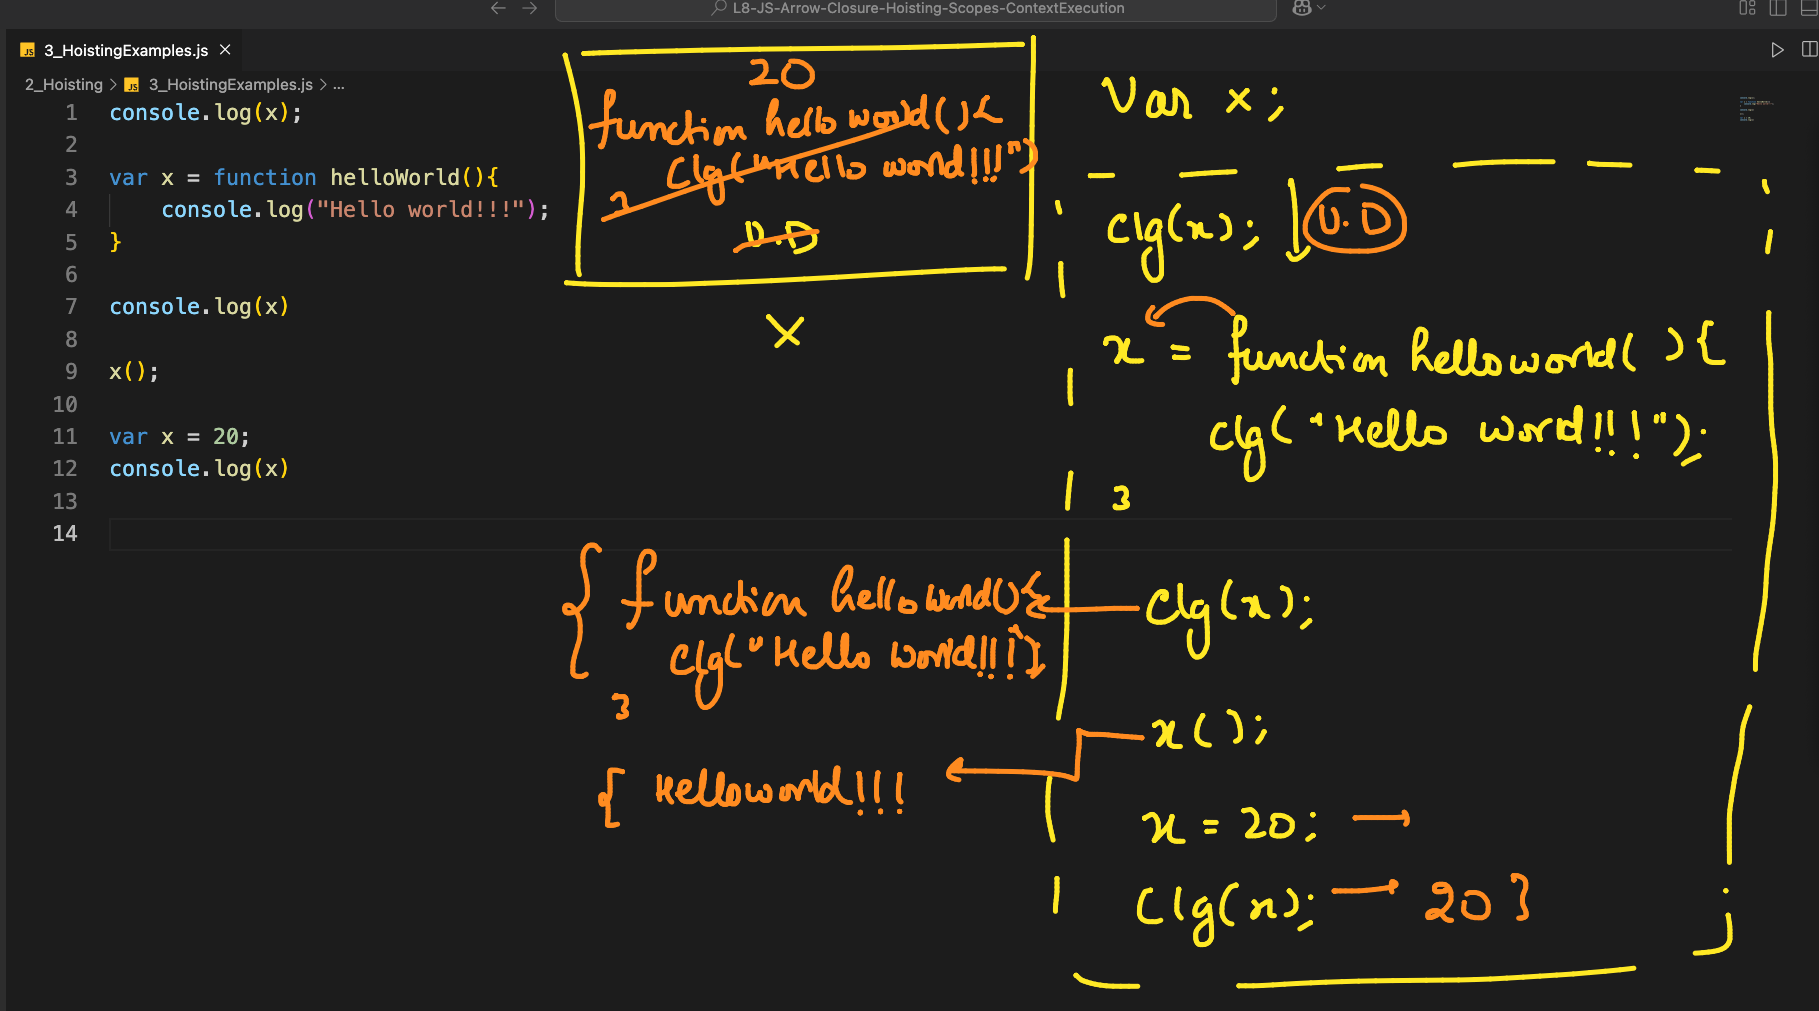 L8-JS-Arrow-Closure-Hoisting-Scopes-ContextExecution
JS 3_HoistingExamples.js
2_Hoisting > JS 3_HoistingExamples.js > ...
1 console.log(x);
2
3 var x = function helloWorld(){
4 console.log("Hello world!!!");
5 }
6
7 console.log(x)
8
9 x();
10
11 var x = 20;
12 console.log(x)
13
14
20
function hello world(){
clg("Hello world!!!")
}
U.D
X
Var x;
clg(x); U.D
x = function helloworld( ){
clg("Hello world!!!");
}
clg(x);
function helloworld(){
clg("Hello world!!!")
}
x();
Helloworld!!!
x = 20;
clg(x); 20